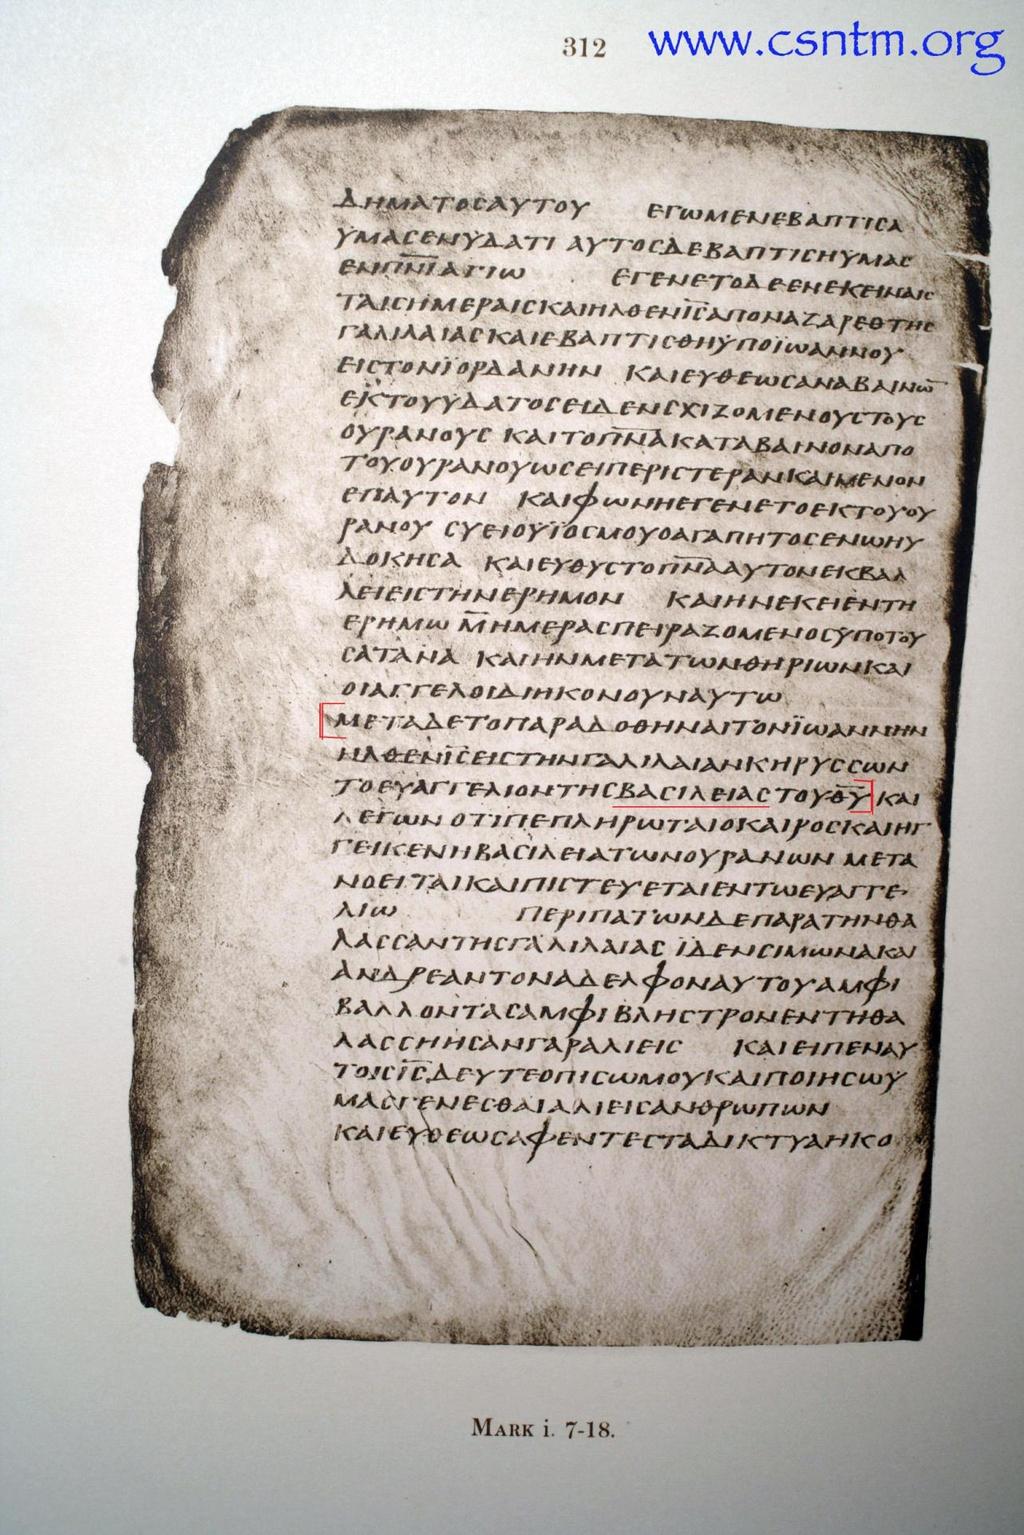 312
www.csntm.org
ΔΗΜΑΤΟΣΑΥΤΟΥ ΕΓΩΜΕΝΕΒΑΠΤΙΣΑ
ΥΜΑΣΕΝΥΔΑΤΙ ΑΥΤΟΣΔΕΒΑΠΤΙΣΗΥΜΑΣ
ΕΝΠ̅Ν̅Ι̅ΑΓΙΩ ΕΓΕΝΕΤΟΔΕΕΝΕΚΕΙΝΑΙΣ
ΤΑΙΣΗΜΕΡΑΙΣΚΑΙΗΛΘΕΝΙ̅Σ̅ΑΠΟΝΑΖΑΡΕΘΤΗΣ
ΓΑΛΙΛΑΙΑΣΚΑΙΕΒΑΠΤΙΣΘΗΫΠΟΪΩΑΝΝΟΥ
ΕΙΣΤΟΝΪΟΡΔΑΝΗΝ ΚΑΙΕΥΘΕΩΣΑΝΑΒΑΙΝΩ̅
ΕΚΤΟΥΥΔΑΤΟΣΕΙΔΕΝΣΧΙΖΟΜΕΝΟΥΣΤΟΥΣ
ΟΥΡΑΝΟΥΣ ΚΑΙΤΟΠ̅Ν̅Α̅ΚΑΤΑΒΑΙΝΟΝΑΠΟ
ΤΟΥΟΥΡΑΝΟΥΩΣΕΙΠΕΡΙΣΤΕΡΑΝΚΑΙΜΕΝΟΝ
ΕΠΑΥΤΟΝ ΚΑΙΦΩΝΗΕΓΕΝΕΤΟΕΚΤΟΥΟΥ
ΡΑΝΟΥ ΣΥΕΙΟΥΪΟΣΜΟΥΟΑΓΑΠΗΤΟΣΕΝΩΗΥ
ΔΟΚΗΣΑ ΚΑΙΕΥΘΥΣΤΟΠ̅Ν̅Α̅ΑΥΤΟΝΕΚΒΑΛ
ΛΕΙΕΙΣΤΗΝΕΡΗΜΟΝ ΚΑΙΗΝΕΚΕΙΕΝΤΗ
ΕΡΗΜΩ Μ̅ΗΜΕΡΑΣΠΕΙΡΑΖΟΜΕΝΟΣΥΠΟΤΟΥ
ΣΑΤΑΝΑ ΚΑΙΗΝΜΕΤΑΤΩΝΘΗΡΙΩΝΚΑΙ
ΟΙΑΓΓΕΛΟΙΔΙΗΚΟΝΟΥΝΑΥΤΩ
ΜΕΤΑΔΕΤΟΠΑΡΑΔΟΘΗΝΑΙΤΟΝΪΩΑΝΝΗΝ
ΗΛΘΕΝΙ̅Σ̅ΕΙΣΤΗΝΓΑΛΙΛΑΙΑΝΚΗΡΥΣΣΩΝ
ΤΟΕΥΑΓΓΕΛΙΟΝΤΗΣΒΑΣΙΛΕΙΑΣΤΟΥΘ̅Υ̅ΚΑΙ
ΛΕΓΩΝΟΤΙΠΕΠΛΗΡΩΤΑΙΟΚΑΙΡΟΣΚΑΙΗΓ
ΓΕΙΚΕΝΗΒΑΣΙΛΕΙΑΤΩΝΟΥΡΑΝΩΝ ΜΕΤΑ
ΝΟΕΙΤΑΙΚΑΙΠΙΣΤΕΥΕΤΑΙΕΝΤΩΕΥΑΓΓΕ
ΛΙΩ ΠΕΡΙΠΑΤΩΝΔΕΠΑΡΑΤΗΝΘΑ
ΛΑΣΣΑΝΤΗΣΓΑΛΙΛΑΙΑΣ ΪΔΕΝΣΙΜΩΝΑΚΑΙ
ΑΝΔΡΕΑΝΤΟΝΑΔΕΛΦΟΝΑΥΤΟΥΑΜΦΙ
ΒΑΛΛΟΝΤΑΣΑΜΦΙΒΛΗΣΤΡΟΝΕΝΤΗΘΑ
ΛΑΣΣΗΗΣΑΝΓΑΡΑΛΙΕΙΣ ΚΑΙΕΙΠΕΝΑΥ
ΤΟΙΣΙ̅Σ̅ΔΕΥΤΕΟΠΙΣΩΜΟΥΚΑΙΠΟΙΗΣΩΥ
ΜΑΣΓΕΝΕΣΘΑΙΑΛΙΕΙΣΑΝΘΡΩΠΩΝ
ΚΑΙΕΥΘΕΩΣΑΦΕΝΤΕΣΤΑΔΙΚΤΥΑΗΚΟ
MARK i. 7-18.